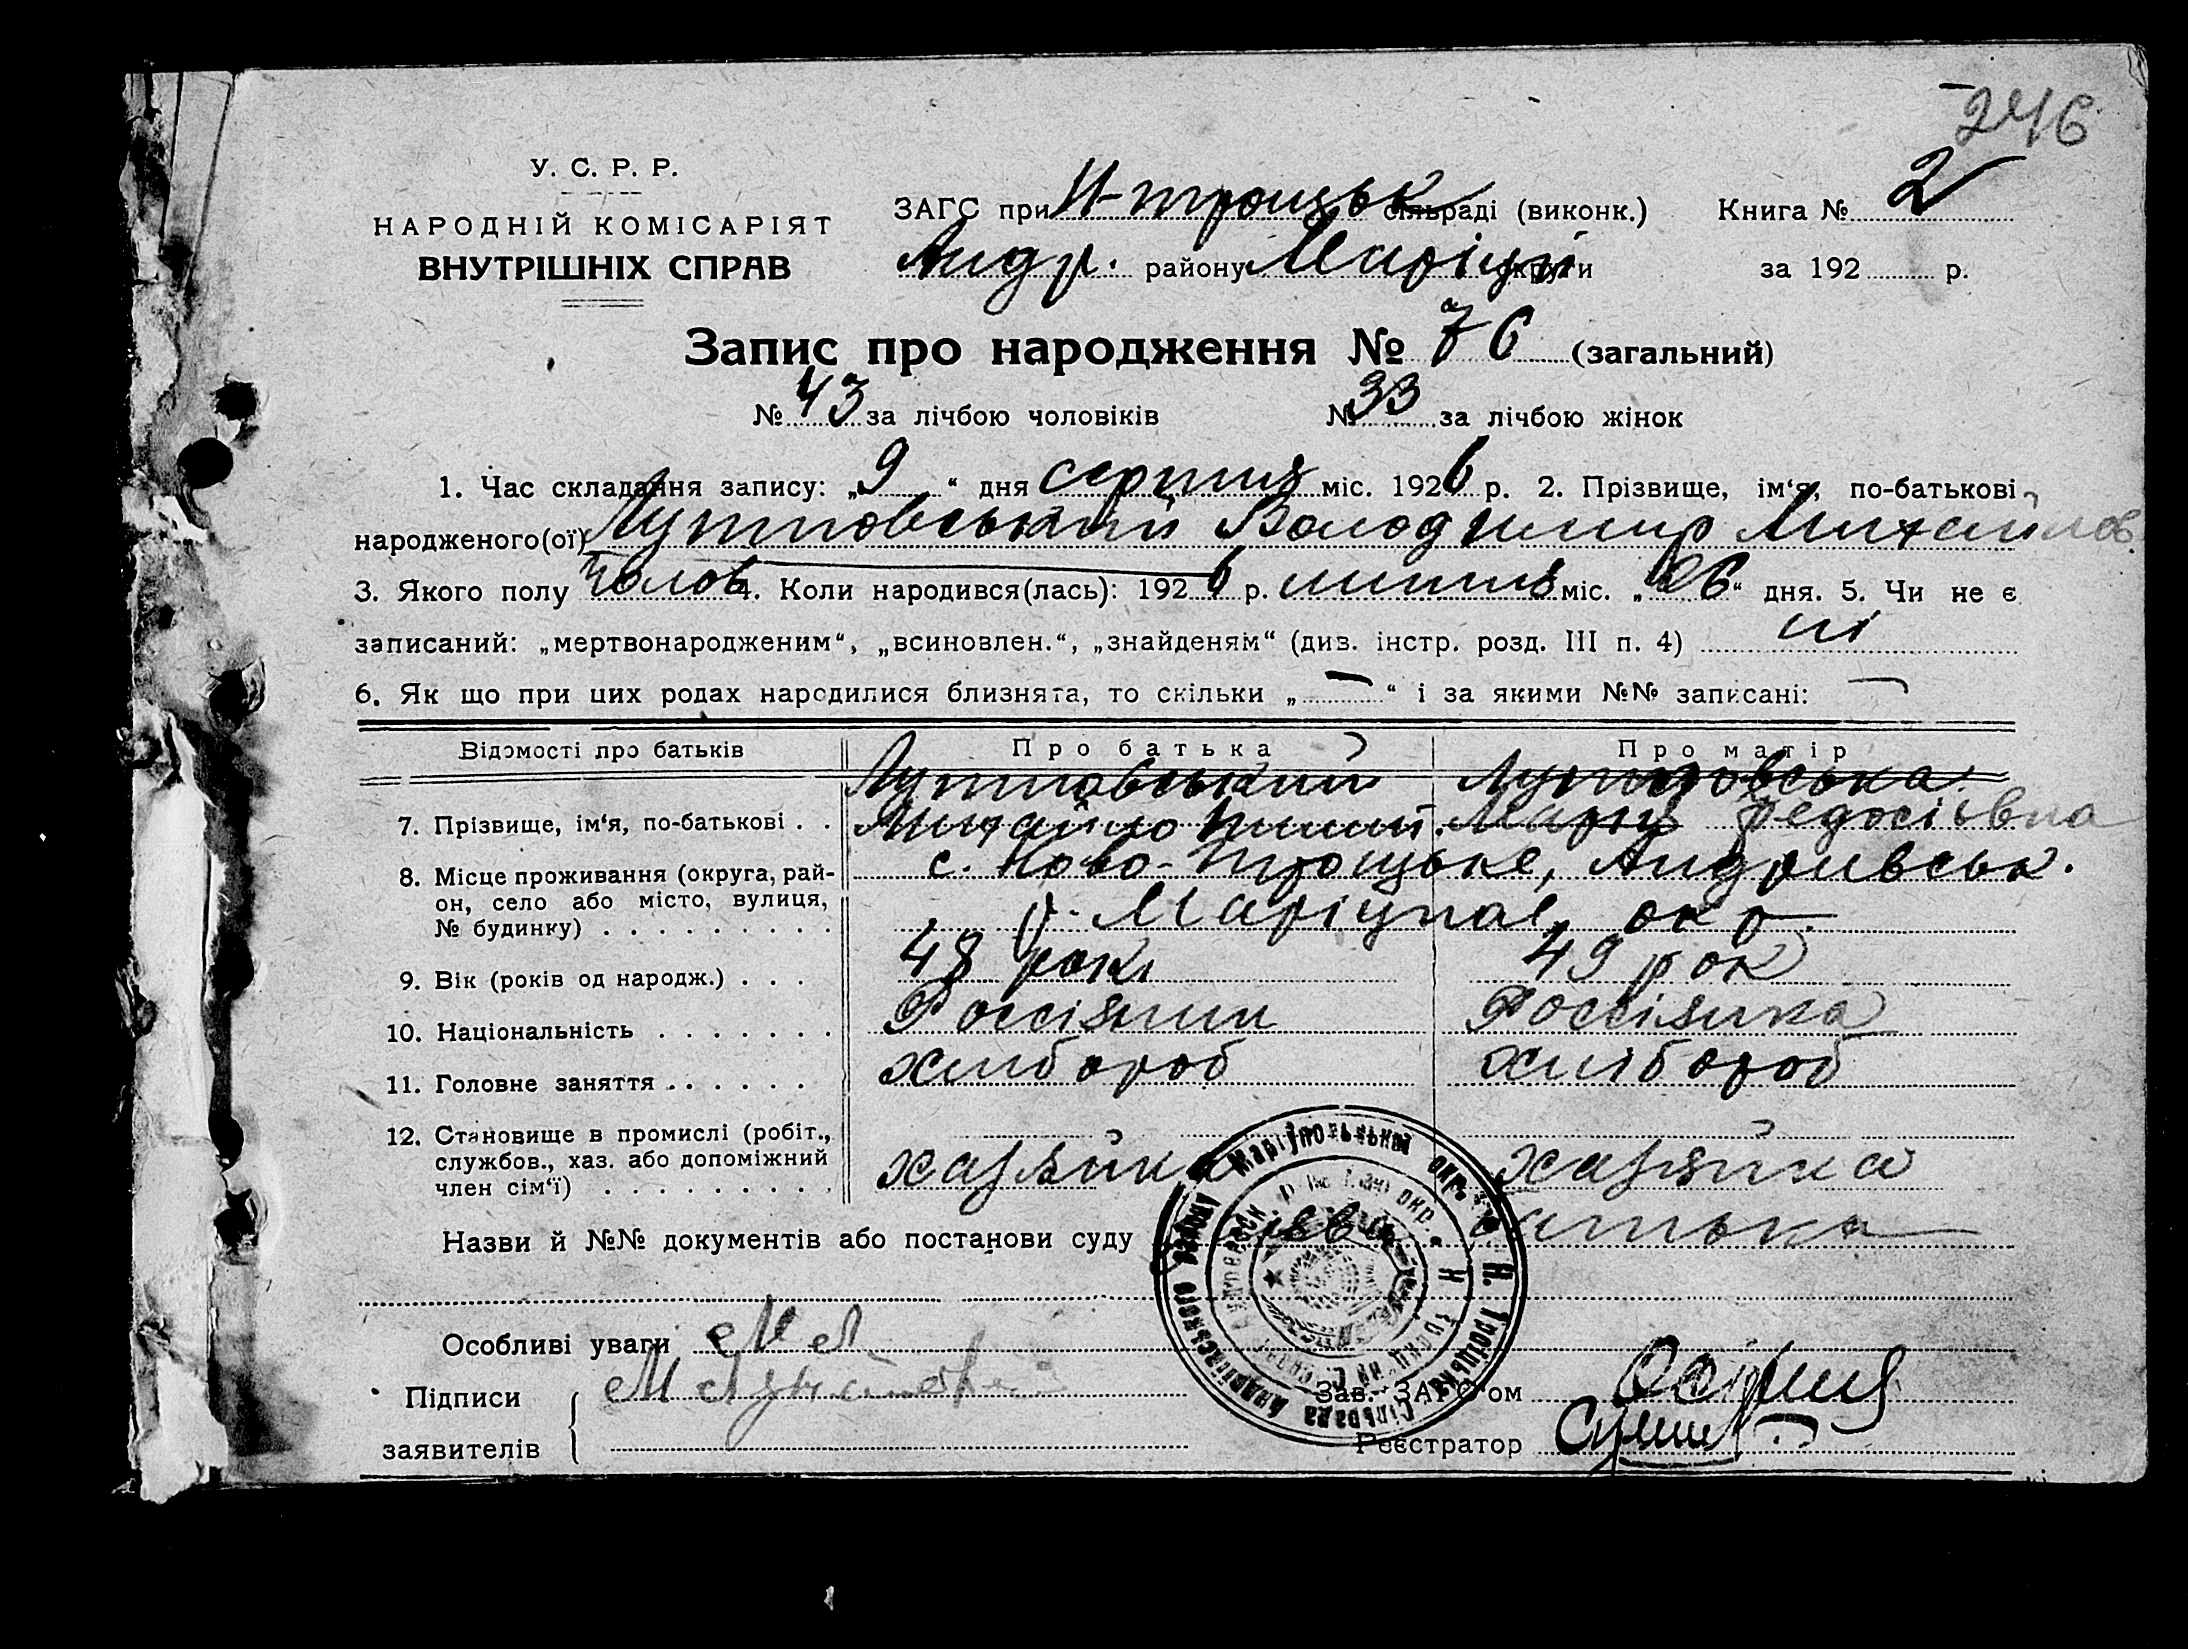 246
У. С. Р. Р.
НАРОДНІЙ КОМІСАРІЯТ
ВНУТРІШНІХ СПРАВ
ЗАГС при Н-троцьк сільраді (виконк.) Книга № 2
Андр. району Маріуп округи за 192 р.
Запис про народження № 76 (загальний)
№ 43 за лічбою чоловіків № 33 за лічбою жінок
1. Час складання запису: „9“ дня серпня міс. 1926 р. 2. Прізвище, ім‘я, по-батькові
народженого(ої) Володимир Михайлов
3. Якого полу чолов 4. Коли народився(лась): 1926 р. липня міс. „26“ дня. 5. Чи не є
записаний: „мертвонародженим“, „всиновлен.“, „знайденям“ (див. інстр. розд. III п. 4) ні
6. Як що при цих родах народилися близнята, то скільки „—“ і за якими №№ записані: —
Відомості про батьків Про батька Про матір
7. Прізвище, ім‘я, по-батькові . . Михайло Мария Федосіевна
8. Місце проживання (округа, рай-
он, село або місто, вулиця,
№ будинку) . . . . . . . . .
с. Ново-Троцьке, Андриівськ.
р. Маріупол, окр.
9. Вік (років од народж.) . . . 48 рокі 49 рок
10. Національність . . . . . . . Россіянин Россіянка
11. Головне заняття . . . . . . хлібороб хлібороб
12. Становище в промислі (робіт.,
службов., хаз. або допоміжний
член сім‘ї) . . . . . . . . .
хазяїн хазяйка
Назви й №№ документів або постанови суду заява батька
Особливі уваги
Підписи
заявителів
Зав. ЗАГС‘ом
Реєстратор
Н. Троїцька Сільрада Андріївського району Маріупольської окр.